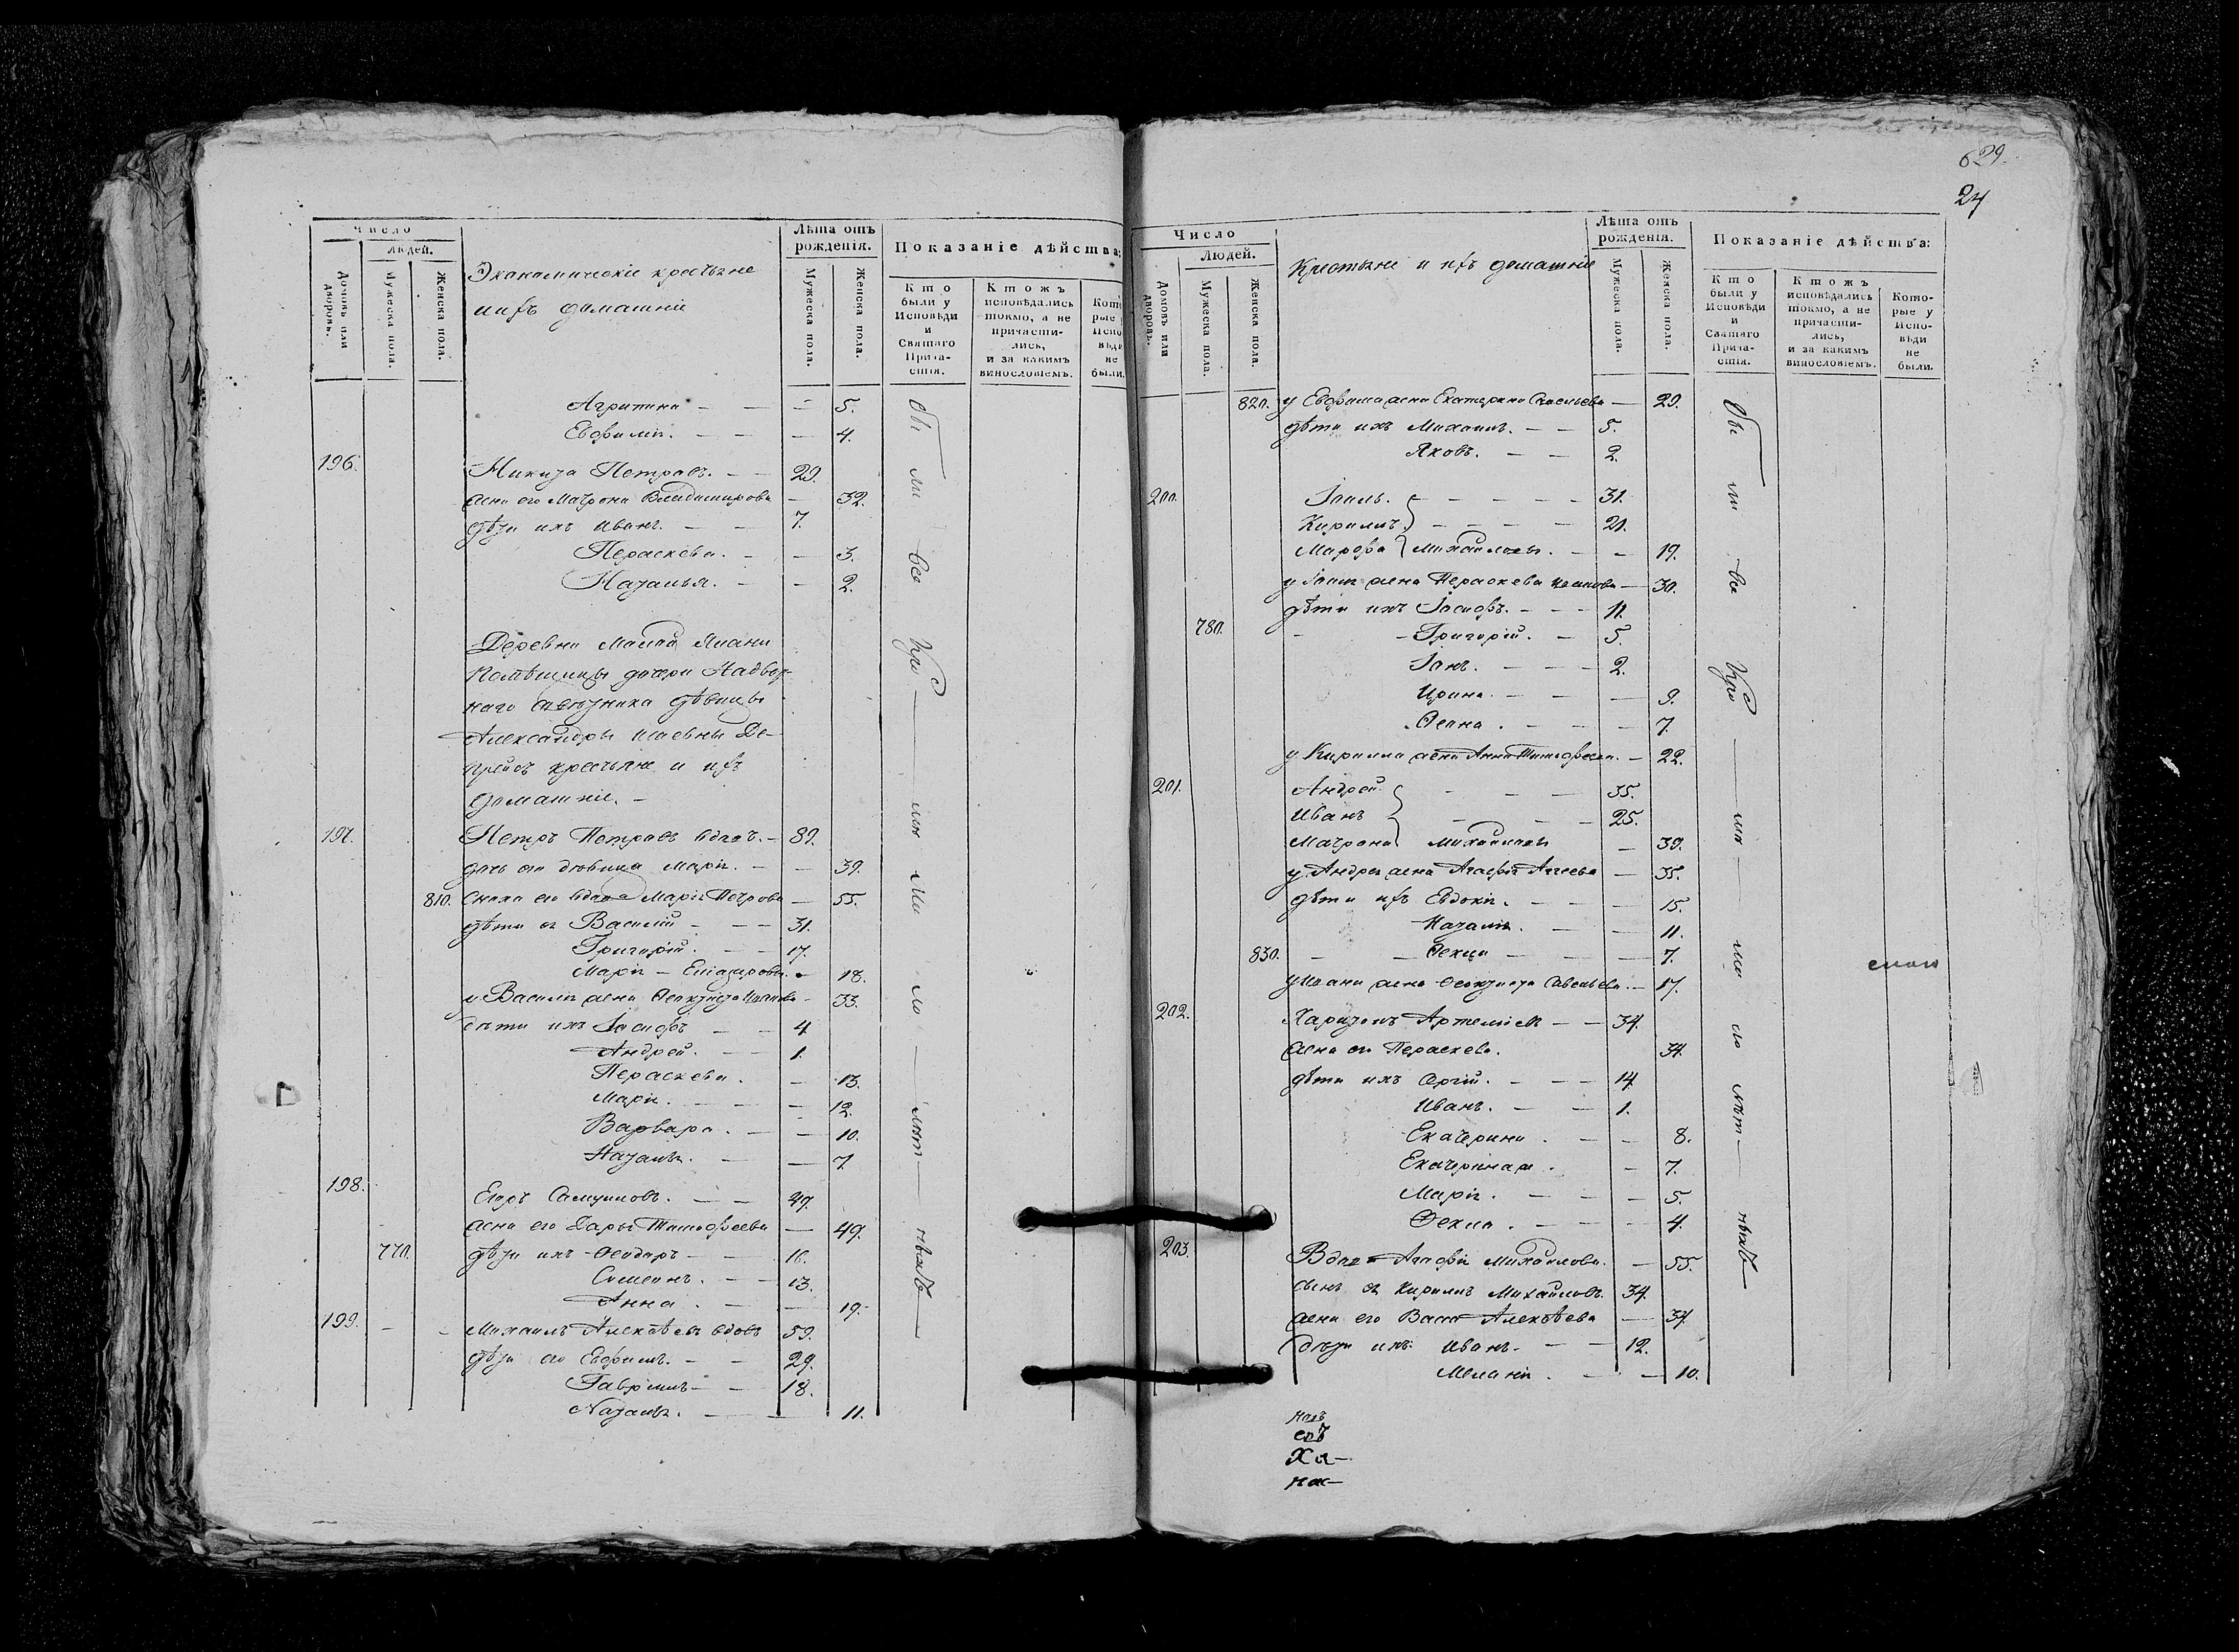 Число
Людей.
Домовъ или дворовъ.
Мужеска пола.
Женска пола.
Экономическіе крестьяне
и ихъ домашніе
Лѣта отъ рожденія.
Мужеска пола.
Женска пола.
Показаніе дѣйства:
Кто были у Исповѣди и Святаго Прича-стія.
Ктожъ исповѣдались токмо, а не причасти-лись, и за какимъ винословіемъ.
Агрипина - - - 5.
Евфимія. - - - 4.
196. Никита Петровъ. - - 29.
жена его Матрона Владимирова - 32.
дѣти ихъ Иванъ. - - 7.
Параскева. - - 3.
Наталья. - - 2.
Деревни Малой
Помѣщицы дочери Надвор-
наго совѣтника дѣвицы
Александры
крестьяне и ихъ
домашніе. -
197. Петръ Петровъ вдовъ. - 89.
дочь его дѣвица Марія. - - 39.
810. Сноха его вдова Марія Петрова - 55.
дѣти ея Василій - - - 31.
Григорій. - - 17.
Марія - - 18.
у Василія жена Феоктиста - 33.
дѣти ихъ Іосифъ - - 4.
Андрей. - - 1.
Параскева. - 13.
Марія. - - - 12.
Варвара. - - 10.
Наталія. - - 7.
198. Егоръ Самуиловъ. - - 47.
жена его Дарья Тимофеева - 49.
770. дѣти ихъ Феодоръ - - 16.
Симеонъ. - - 13.
Анна. - - 19.
199. - - Михаилъ Алексѣевъ вдовъ 59.
дѣти его Евфимъ. - - 29.
Гавріилъ - - 18.
Наталія. - - 11.
Были все при
629.
24
Число
Людей.
Домовъ или дворовъ.
Мужеска пола.
Женска пола.
Крестьяне и ихъ домашніе
Лѣта отъ рожденія.
Мужеска пола.
Женска пола.
Показаніе дѣйства:
Кто были у Исповѣди и Святаго Прича-стія.
Ктожъ исповѣдались токмо, а не причасти-лись, и за какимъ винословіемъ.
Кото-рые у Испо-вѣди не были.
820. у Евфима жена Екатерина Савельева - 29.
дѣти ихъ Михаилъ. - - 5.
Яковъ. - - 2.
200. Іоиль. - - - - - 31.
Кириллъ. - - - - 21.
Марфа Михайловы. - - 19.
у Іоиля жена Параскева - 30.
дѣти ихъ Іосифъ. - - - 11.
780. - - Григорій. - 5.
Іонъ. - - - 2.
Ирина. - - - 9.
- - - 7.
у Кирилла жена Анна Тимофеева. - 22.
201. Андрей - - - 35.
Иванъ - - - 25.
Матрона Михайловы - 39.
у Андрея жена Агафія - 35.
дѣти ихъ Евдокія. - - - 15.
Наталія. - - 11.
830. - - Фекла - - - 7.
жена Феоктиста Савельева. - 17.
202. Харитонъ Артеміевъ - - 34.
жена его Параскева. 34.
дѣти ихъ Сергій. - - - 14
Иванъ. - - 1.
Екатерина. - - 8.
Екатерина ж. - 7.
Марія. - - - 5.
Фекла. - - - 4.
203. Вдова Агафія Михайлова. - 55.
сынъ ея Кириллъ Михайловъ. 34.
жена его Васса Алексѣева - 34
дѣти ихъ Иванъ. - - 12.
Меланія. - - 10.
Были все при
Ха-